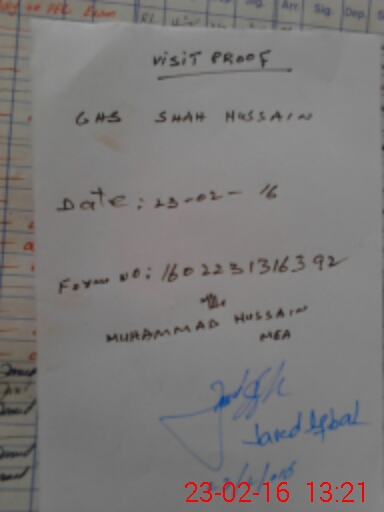 Exam
Sig.
Arr.
Sig.
Dep.
VISIT PROOF
GHS SHAH HUSSAIN
Date: 23-02-16
Form NO: 160223131639 2
MUHAMMAD HUSSAIN
MEA
Javed Iqbal
23-02-16 13:21